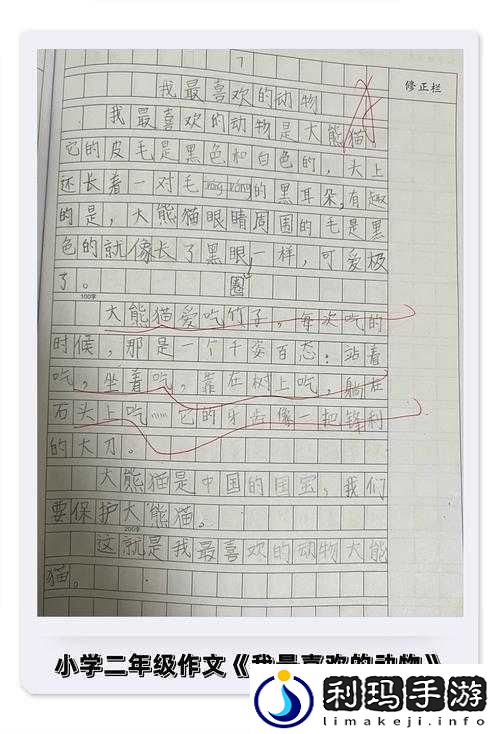 7
修正栏
我最喜欢的动物
我最喜欢的动物是大熊猫
它的皮毛是黑色和白色的，头上
还长着一对毛róng róng的黑耳朵，有趣
的是，大熊猫眼睛周围的毛是黑
色的就像长了黑眼一样，可爱极
圈
了。
100字
大熊猫爱吃竹子，每次吃的
时候，那是一个千姿百态：站着
吃，坐着吃，靠在树上吃，躺在
石头上吃……它的牙齿像一把锋利
的大刀。
大熊猫是中国的国宝，我们
要保护大熊猫。
200字
这就是我最喜欢的动物大熊
猫。
小学二年级作文《我最喜欢的动物》
利玛手游
limakeji.info.net